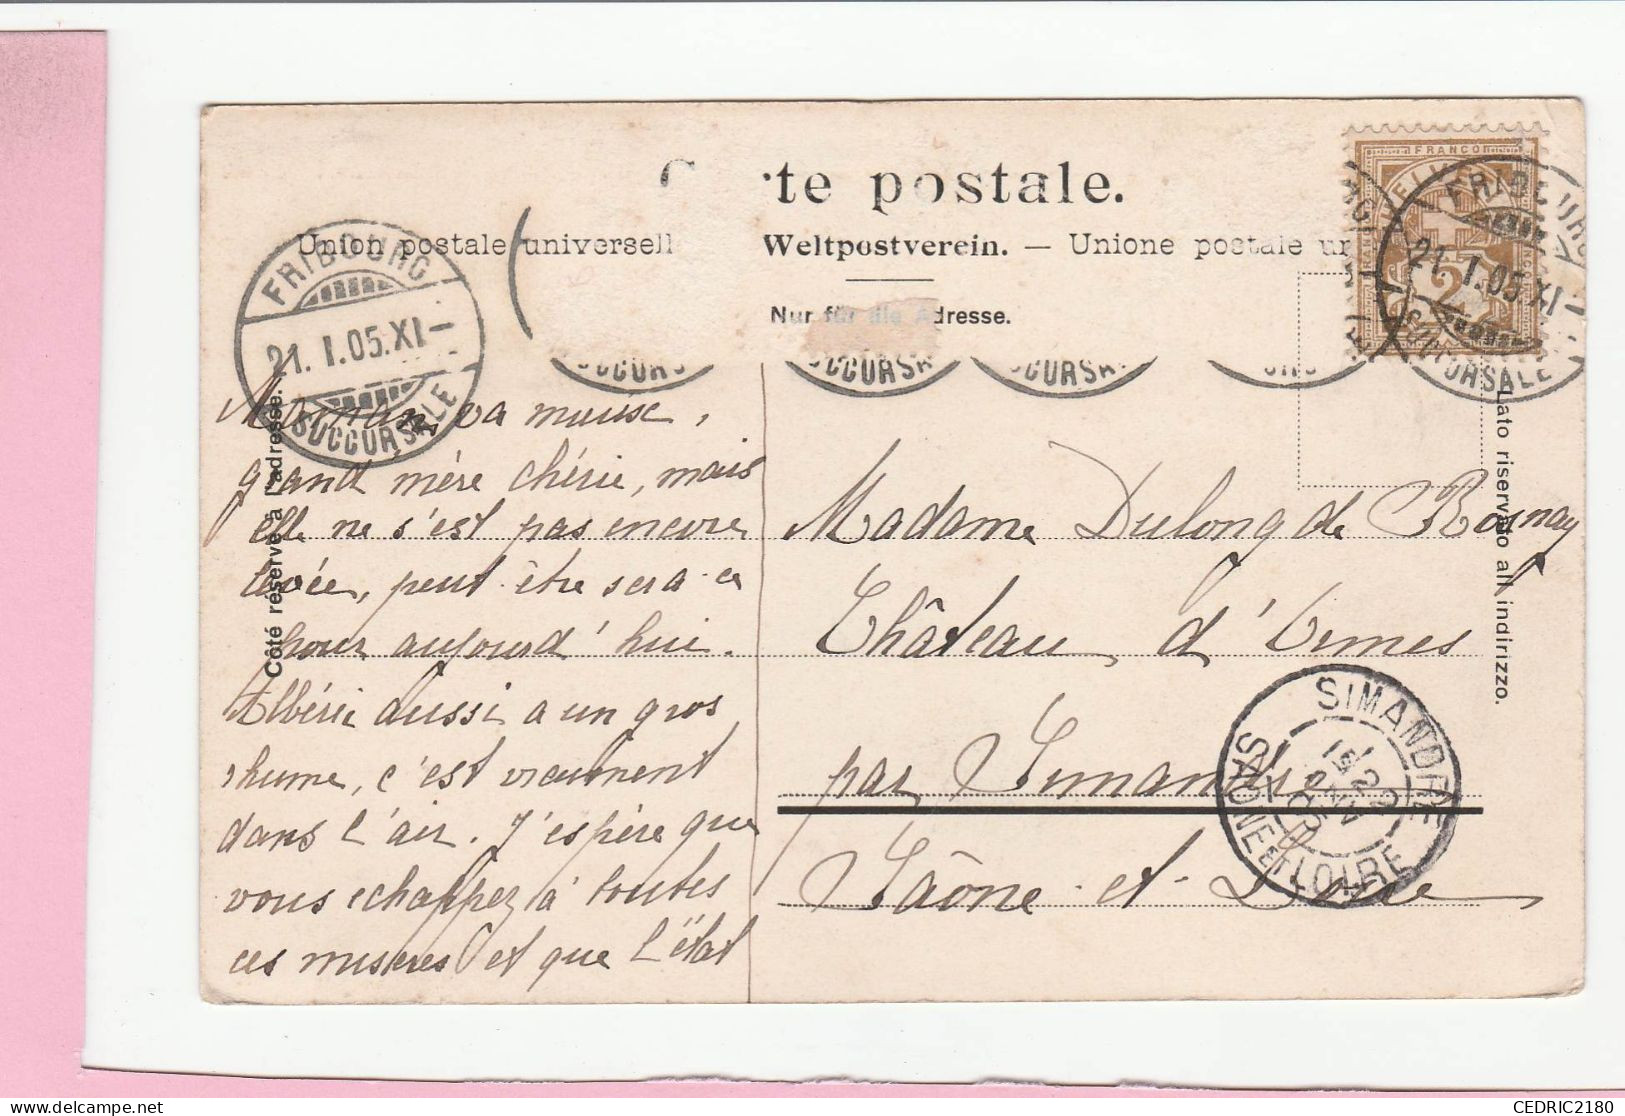 Carte postale.
Union postale universelle Weltpostverein. — Unione postale un
Nur für die Adresse.
FRANCO
2
FRIBOURG
21. I. 05. XI —
SUCCURSALE
FRIBOURG
21. I. 05. XI —
SUCCURSALE
SUCCURSA
SUCCURSA
CCURSA
Côté réservé à l'adresse.
Lato riservato all indirizzo.
Maman va mieux,
grand mère chérie, mais
elle ne s'est pas encore
levée, peut-être sera-ce
pour aujourd'hui.
Albéric aussi a un gros
rhume, c'est vraiment
dans l'air. J'espère que
vous échappez à toutes
ces misères et que l'état
Madame Dulong de Rosnay
Château d'Ormes
par Simandre
Saône-et-Loire
SIMANDRE
22
JANV
05
SAONE ET LOIRE
CEDRIC2180